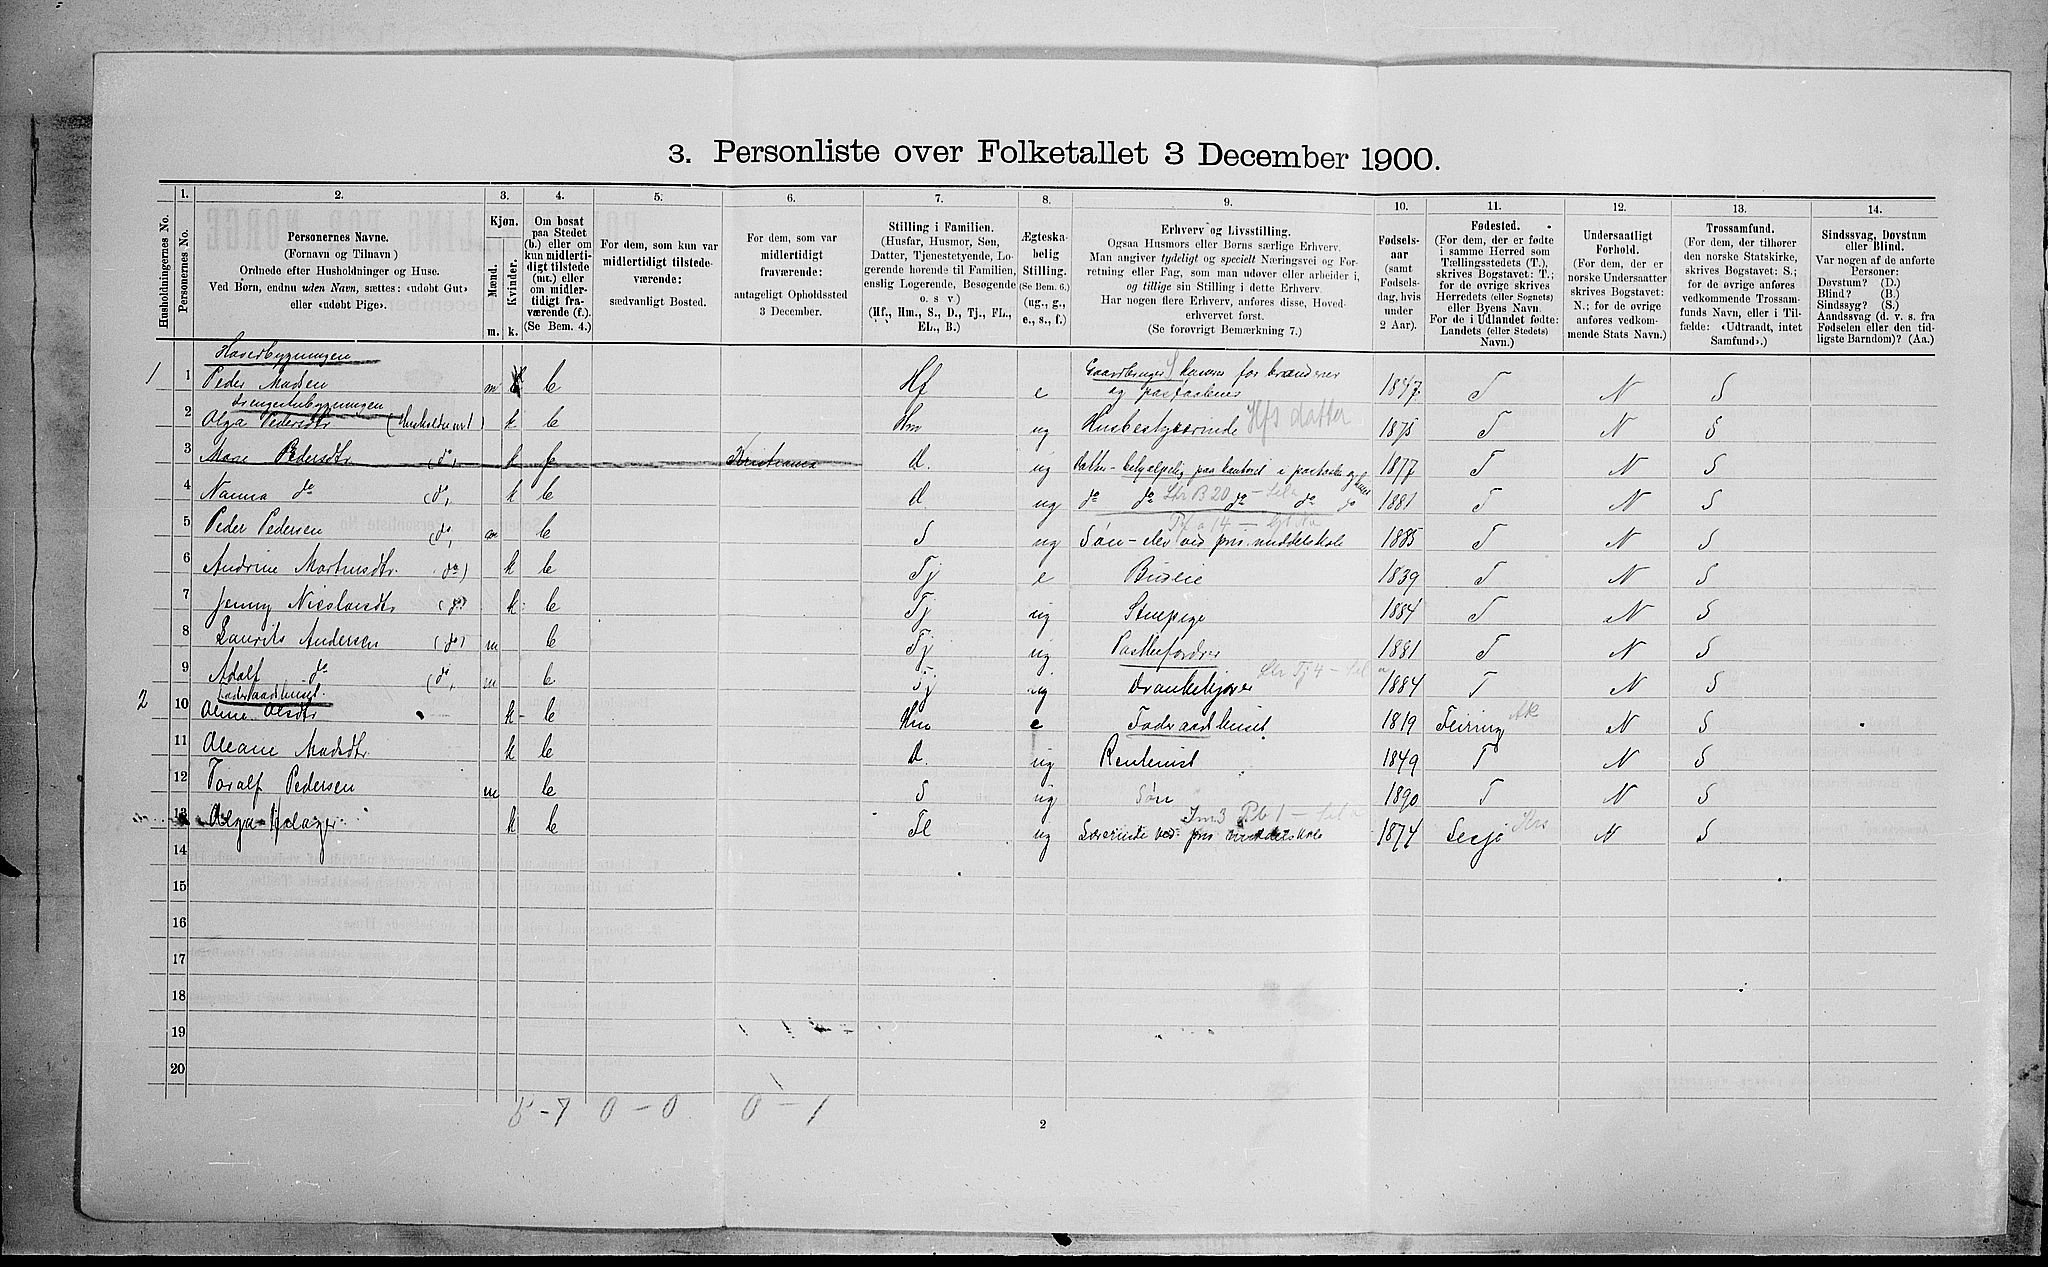 3. Personliste over Folketallet 3 December 1900.
Husholdningernes No.
1. Personernes No.
2. Personernes Navne.
(Fornavn og Tilnavn)
Ordnede efter Husholdninger og Huse.
Ved Børn, endnu uden Navn, sættes: «udøbt Gut»
eller «udøbt Pige».
3. Kjøn.
Mænd. Kvinder.
m. k.
4. Om bosat
paa Stedet
(b.) eller om
kun midlerti-
digt tilstede
(mt.) eller
om midler-
tidigt fra-
værende (f.).
(Se Bem. 4.)
5. For dem, som kun var
midlertidigt tilstede-
værende:
sædvanligt Bosted.
6. For dem, som var
midlertidigt
fraværende:
antageligt Opholdssted
3 December.
7. Stilling i Familien.
(Husfar, Husmor, Søn,
Datter, Tjenestetyende, Lo-
gerende hørende til Familien,
enslig Logerende, Besøgende
o. s v)
(Hf., Hm., S., D., Tj., FL.,
EL., B.)
8. Ægteska-
belig
Stilling.
(Se Bem. 6.)
(ug., g.,
e., s., f.)
9. Erhverv og Livsstilling.
Ogsaa Husmors eller Børns særlige Erhverv.
Man angiver tydeligt og specielt Næringsvei og For-
retning eller Fag, som man udøver eller arbeider i,
og tillige sin Stilling i dette Erhverv.
Har nogen flere Erhverv, anføres disse, Hoved-
erhvervet først.
(Se forøvrigt Bemærkning 7.)
10. Fødsels-
aar
(samt
Fødsels-
dag, hvis
under
2 Aar).
11. Fødested.
(For dem, der er fødte
i samme Herred som
Tællingsstedets (T.),
skrives Bogstavet: T.;
for de øvrige skrives
Herredets (eller Sognets)
eller Byens Navn.
For de i Udlandet fødte:
Landets (eller Stedets)
Navn.)
12. Undersaatligt
Forhold.
(For dem, der er
norske Undersaatter
skrives Bogstavet:
N.; for de øvrige
anføres vedkom-
mende Stats Navn.)
13. Trossamfund.
(For dem, der tilhører
den norske Statskirke,
skrives Bogstavet: S.;
for de øvrige anføres
vedkommende Trossam-
funds Navn, eller i Til-
fælde: «Udtraadt, intet
Samfund».)
14. Sindssvag, Døvstum
eller Blind.
Var nogen af de anførte
Personer:
Døvstum? (D.)
Blind? (B.)
Sindssyg? (S.)
Aandssvag (d. v. s. fra
Fødselen eller den tid-
ligste Barndom)? (Aa.)
Hovedbygningen
1 1 Peder Madsen m b Hf e Gaardbruger og 1847 T N S
Drengestubygningen
2 Olga Pedersdtr k b Hm ug Husbestyrerinde Hfs datter 1875 T N S
3 Mare Pedersdtr (do) k f Kristiania d. ug Datter - behjælpelig paa kontoret 1877 T N S
4 Nanna do (do) k b d ug do do do do do 1881 T N S
5 Peder Pedersen (do) m b S ug Søn - elev ved pri. middelskole 1885 T N S
6 Andrine Martinsdtr. (do) k b Tj e Budeie 1839 T N S
7 Jenny Nicolaisdtr (do) k b Tj ug Stuepige 1884 T N S
8 Laurits Andersen (do) m b Tj ug Postbefordrer 1881 T N S
9 Adolf do (do) m b Tj ug Drankekjører 1884 T N S
Føderaadhuset.
2 10 Olsdtr k b Hm e Føderaadhuset. 1819 Feiring Ak N S
11 Oleane Madsdtr k b d. ug Rentenist 1849 T N S
12 Toralf Pedersen m b S ug Søn 1890 T N S
13 Olga k b Fl ug Lærerinde ved pri. middelskole 1874 Lesje Kri N S
14
15
16
17
18
19
20
5 - 7 0 - 0 0 - 1
2